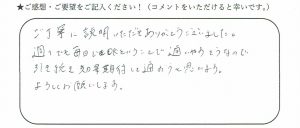 ★ご感想・ご要望をご記入ください！（コメントをいただけると幸いです。）
ご丁寧に説明いただきありがとうございました。
通しでも毎日
ということで通いやすそうなので
引き続き効果期待して通おうと思います。
よろしくお願いします。